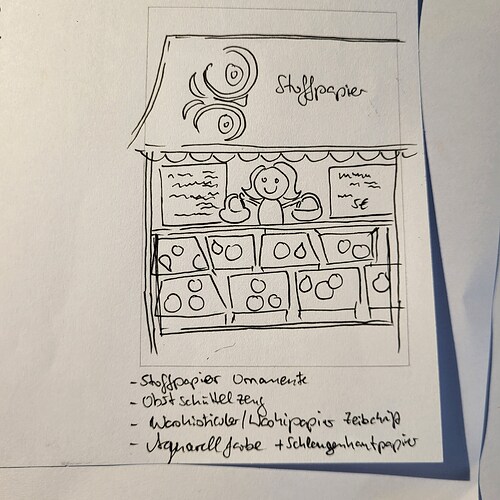 Stoffpapier
5€
- Stoffpapier Ornamente
- Obst Schüttelzeug
- Washisticker/Washipapier Zeitschrift
- Aquarellfarbe + Schlangenhautpapier